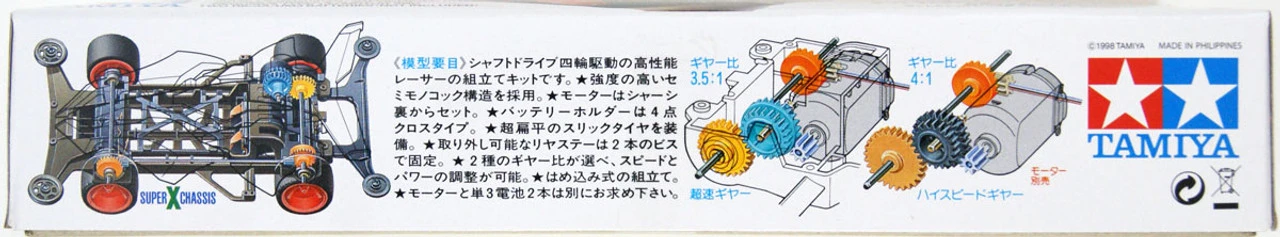 SUPER X CHASSIS
《模型要目》シャフトドライブ四輪駆動の高性能
レーサーの組立てキットです。★強度の高いセ
ミモノコック構造を採用。★モーターはシャーシ
裏からセット。★バッテリーホルダーは4点
クロスタイプ。★超扁平のスリックタイヤを装
備。★取り外し可能なリヤステーは2本のビス
で固定。★2種のギヤー比が選べ、スピードと
パワーの調整が可能。★はめ込み式の組立て。
★モーターと単3電池2本は別にお求め下さい。
ギヤー比
3.5:1
超速ギヤー
ギヤー比
4:1
ハイスピードギヤー
モーター
別売
©1998 TAMIYA MADE IN PHILIPPINES
TAMIYA